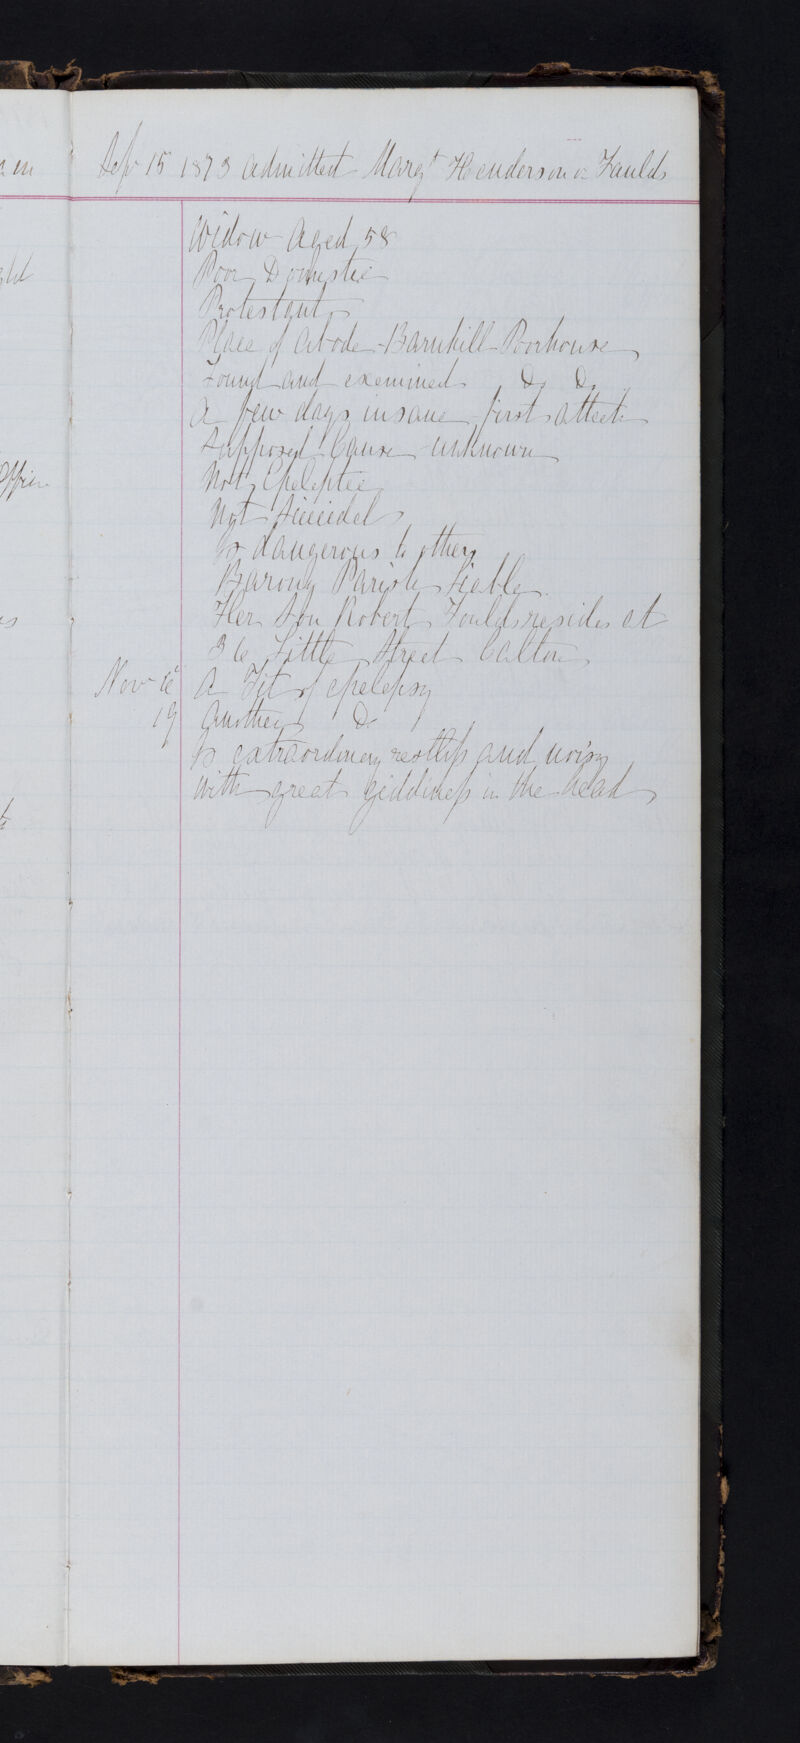 Sep 15 1873 Admitted Margt Henderson or Faulds
Widow Aged 58
Poor Domestic
Protestant
Place of Abode - Barnhill Poorhouse
Found and examined Do Do
A few days insane - first attack
Supposed Cause - unknown
Not Epeleptic
Not Suicidel
Is dangerous to others
Barony Parish liable
Her Son Robert Foulds resides at
36 Little Street Calton
Nov A Fit of epelepsy
19 Another Do
Is extraordinary restless and noisy
with great giddiness in the head